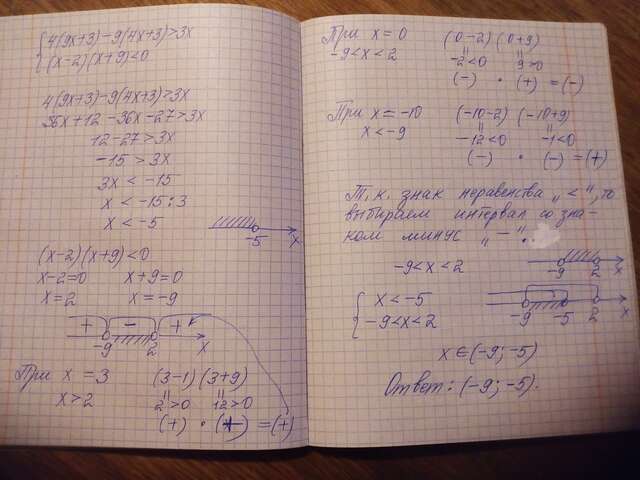 4(9x+3)-9(4x+3)>3x
(x-2)(x+9)<0
4(9x+3)-9(4x+3)>3x
36x+12-36x-27>3x
12-27>3x
-15>3x
3x<-15
x<-15:3
x<-5
-5 x
(x-2)(x+9)<0
x-2=0 x+9=0
x=2 x=-9
+ - +
-9 2 x
При x=3 (3-1)(3+9)
x>2 2>0 12>0
(+)·(+)=(+)
При x=0 (0-2)(0+9)
-9<x<2 -2<0 9>0
(-)·(+)=(-)
При x=-10 (-10-2)(-10+9)
x<-9 -12<0 -1<0
(-)·(-)=(+)
Т.к. знак неравенства „<", то
выбираем интервал со зна-
ком минус „-".
-9<x<2 -9 2 x
x<-5
-9<x<2 -9 -5 2 x
x∈(-9;-5)
Ответ: (-9;-5).